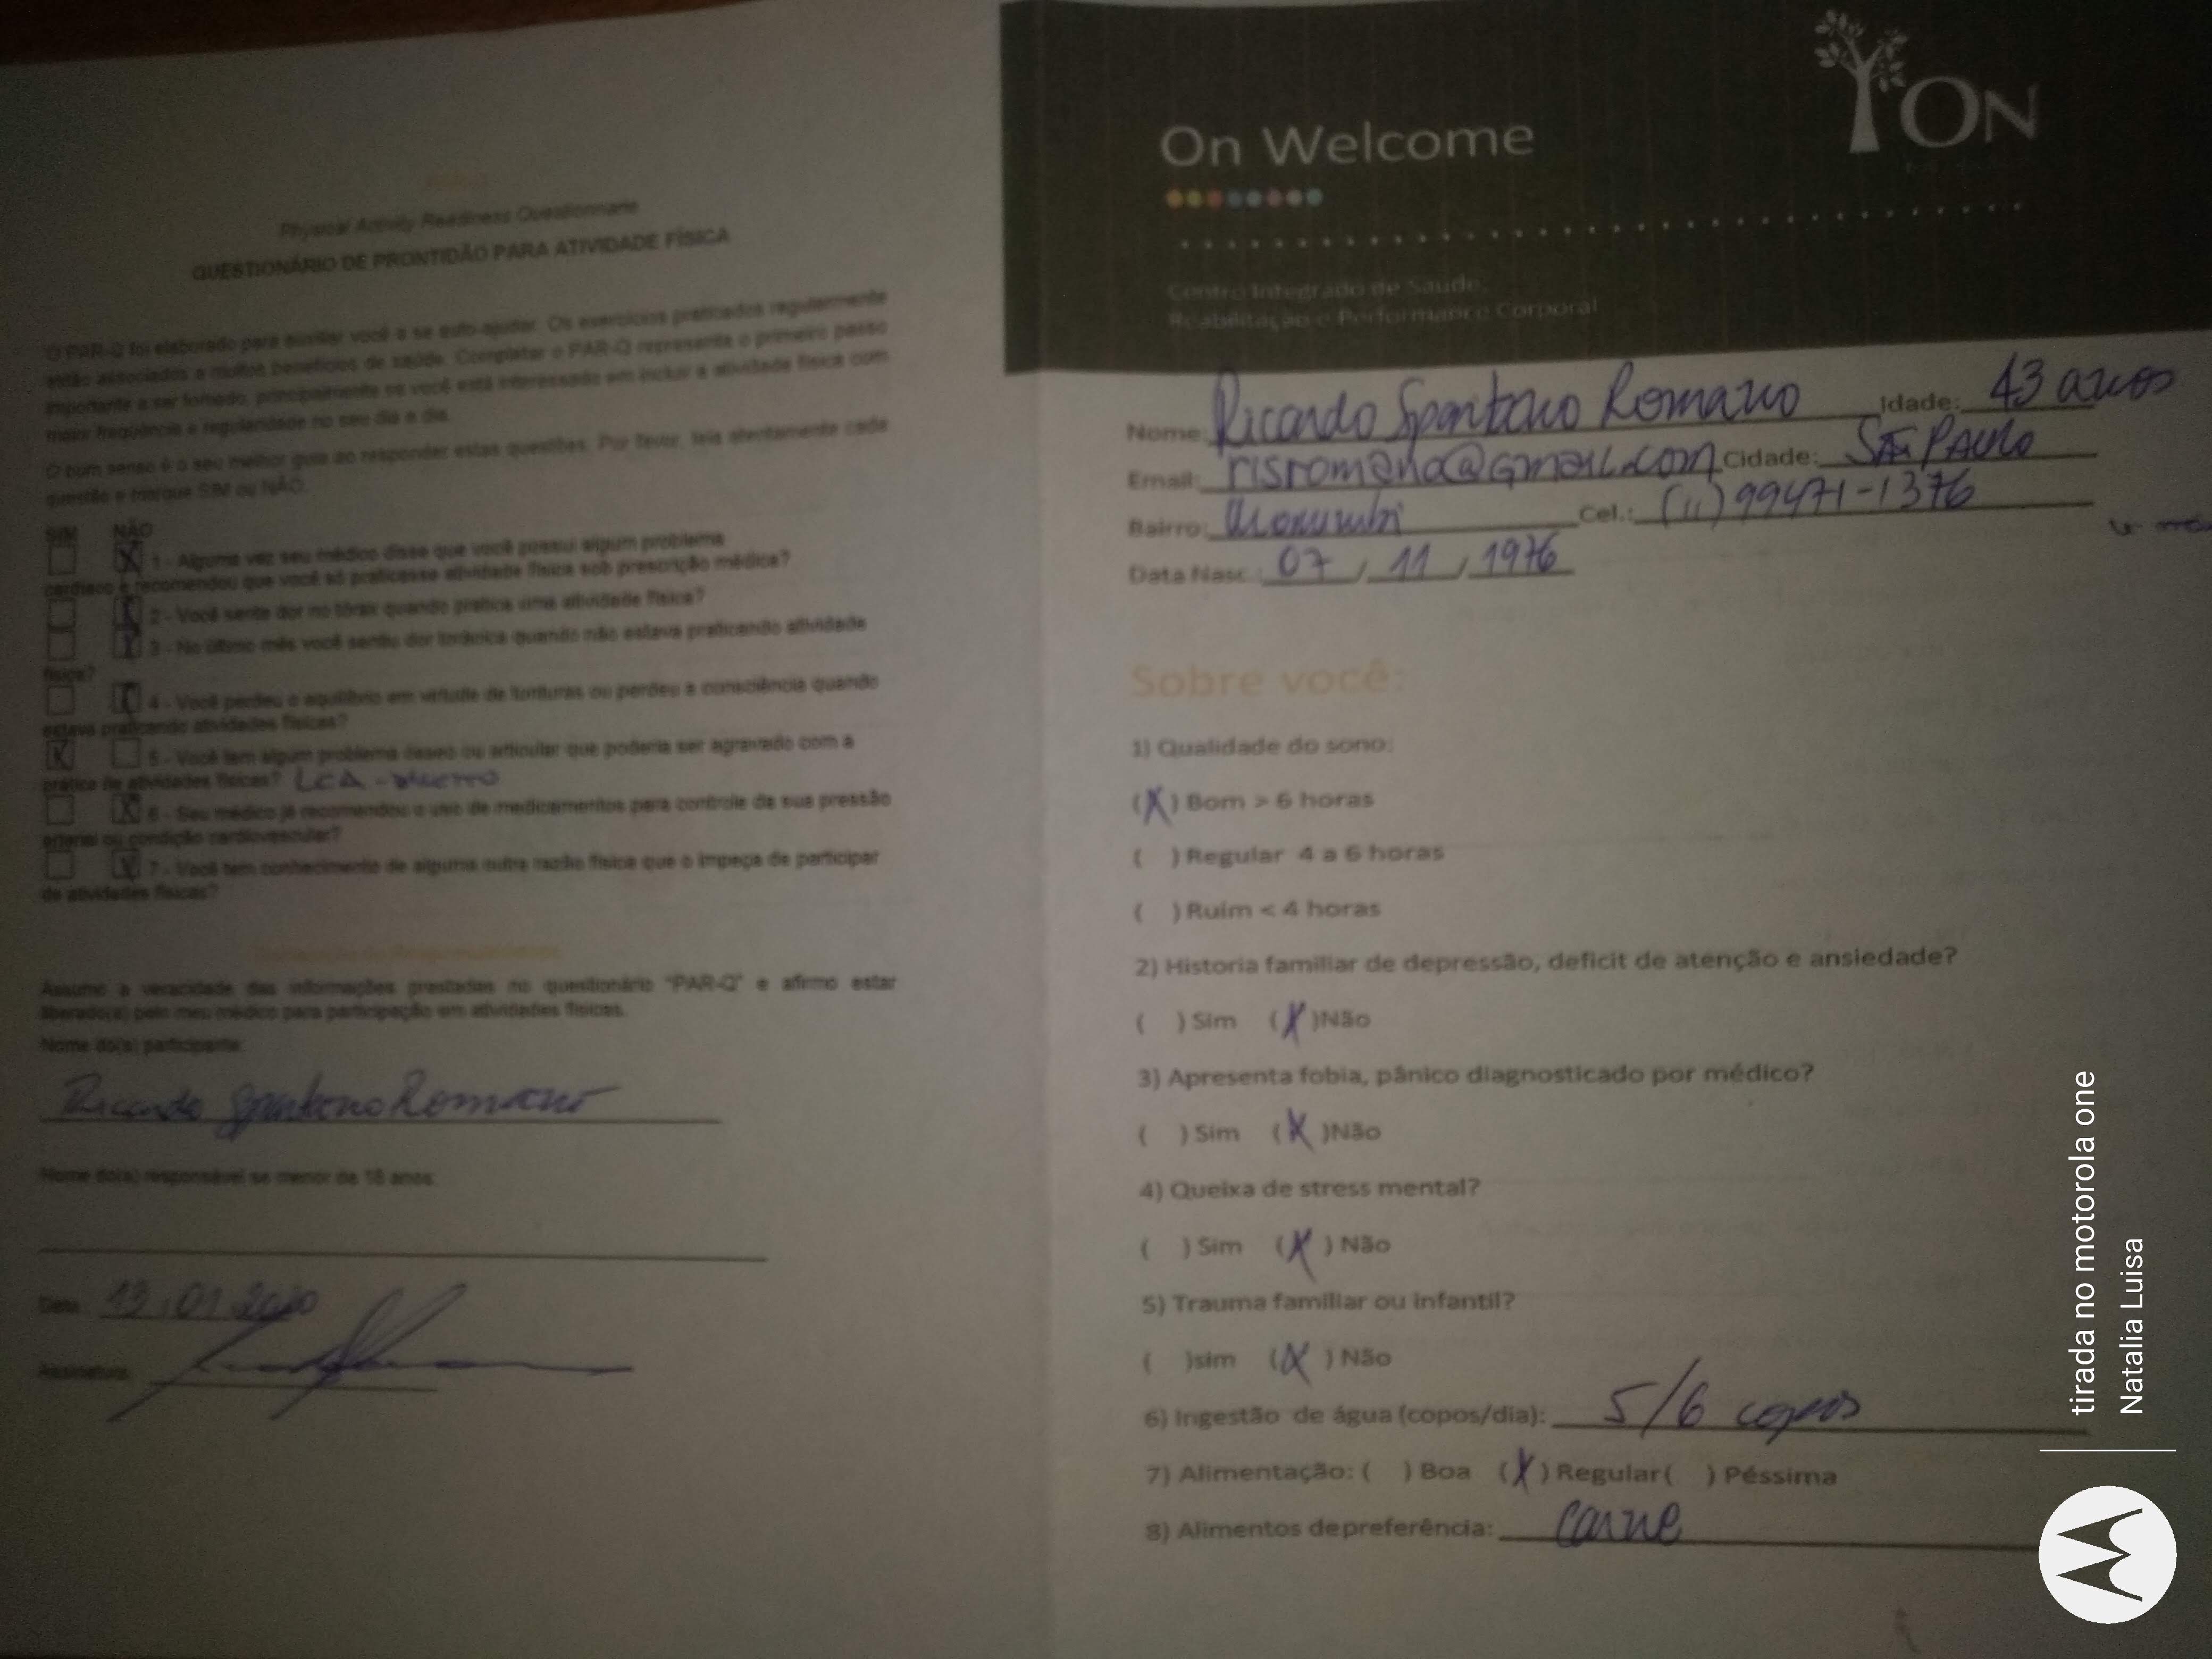 Physical Activity Readiness Questionnaire
QUESTIONÁRIO DE PRONTIDÃO PARA ATIVIDADE FÍSICA
O PAR-Q foi elaborado para auxiliar você a se auto-ajudar. Os exercícios praticados regularmente
estão associados a muitos benefícios de saúde. Completar o PAR-Q representa o primeiro passo
importante a ser tomado, principalmente se você está interessado em incluir a atividade física com
maior frequência e regularidade no seu dia a dia.
O bom senso é o seu melhor guia ao responder estas questões. Por favor, leia atentamente cada
questão e marque SIM ou NÃO.
SIM NÃO
X 1 - Alguma vez seu médico disse que você possui algum problema
cardíaco e recomendou que você só praticasse atividade física sob prescrição médica?
X 2 - Você sente dor no tórax quando pratica uma atividade física?
X 3 - No último mês você sentiu dor torácica quando não estava praticando atividade
física?
X 4 - Você perdeu o equilíbrio em virtude de tonturas ou perdeu a consciência quando
estava praticando atividades físicas?
X 5 - Você tem algum problema ósseo ou articular que poderia ser agravado com a
prática de atividades físicas? LCA -
X 6 - Seu médico já recomendou o uso de medicamentos para controle da sua pressão
arterial ou condição cardiovascular?
X 7 - Você tem conhecimento de alguma outra razão física que o impeça de participar
de atividades físicas?
Assumo a veracidade das informações prestadas no questionário "PAR-Q" e afirmo estar
liberado(a) pelo meu médico para participação em atividades físicas.
Nome do(a) participante:
Ricardo Santano Romano
Nome do(a) responsável se menor de 18 anos:
Data:
Assinatura:
On Welcome
YON
Centro Integrado de Saúde,
Reabilitação e Performance Corporal
Nome: Ricardo Santano Romano Idade: 43 anos
Email: risromano@gmail.com Cidade: São Paulo
Bairro: Morumbi Cel.: (11) 99471-1376
Data Nasc.: 07 / 11 / 1976
Sobre você:
1) Qualidade do sono:
(X) Bom > 6 horas
( ) Regular 4 a 6 horas
( ) Ruim < 4 horas
2) Historia familiar de depressão, deficit de atenção e ansiedade?
( ) Sim (X)Não
3) Apresenta fobia, pânico diagnosticado por médico?
( ) Sim (X)Não
4) Queixa de stress mental?
( ) Sim (X) Não
5) Trauma familiar ou infantil?
( )sim (X) Não
6) Ingestão de água (copos/dia): 5/6 copos
7) Alimentação: ( ) Boa (X) Regular( ) Péssima
8) Alimentos de preferência: Carne
tirada no motorola one
Natalia Luisa